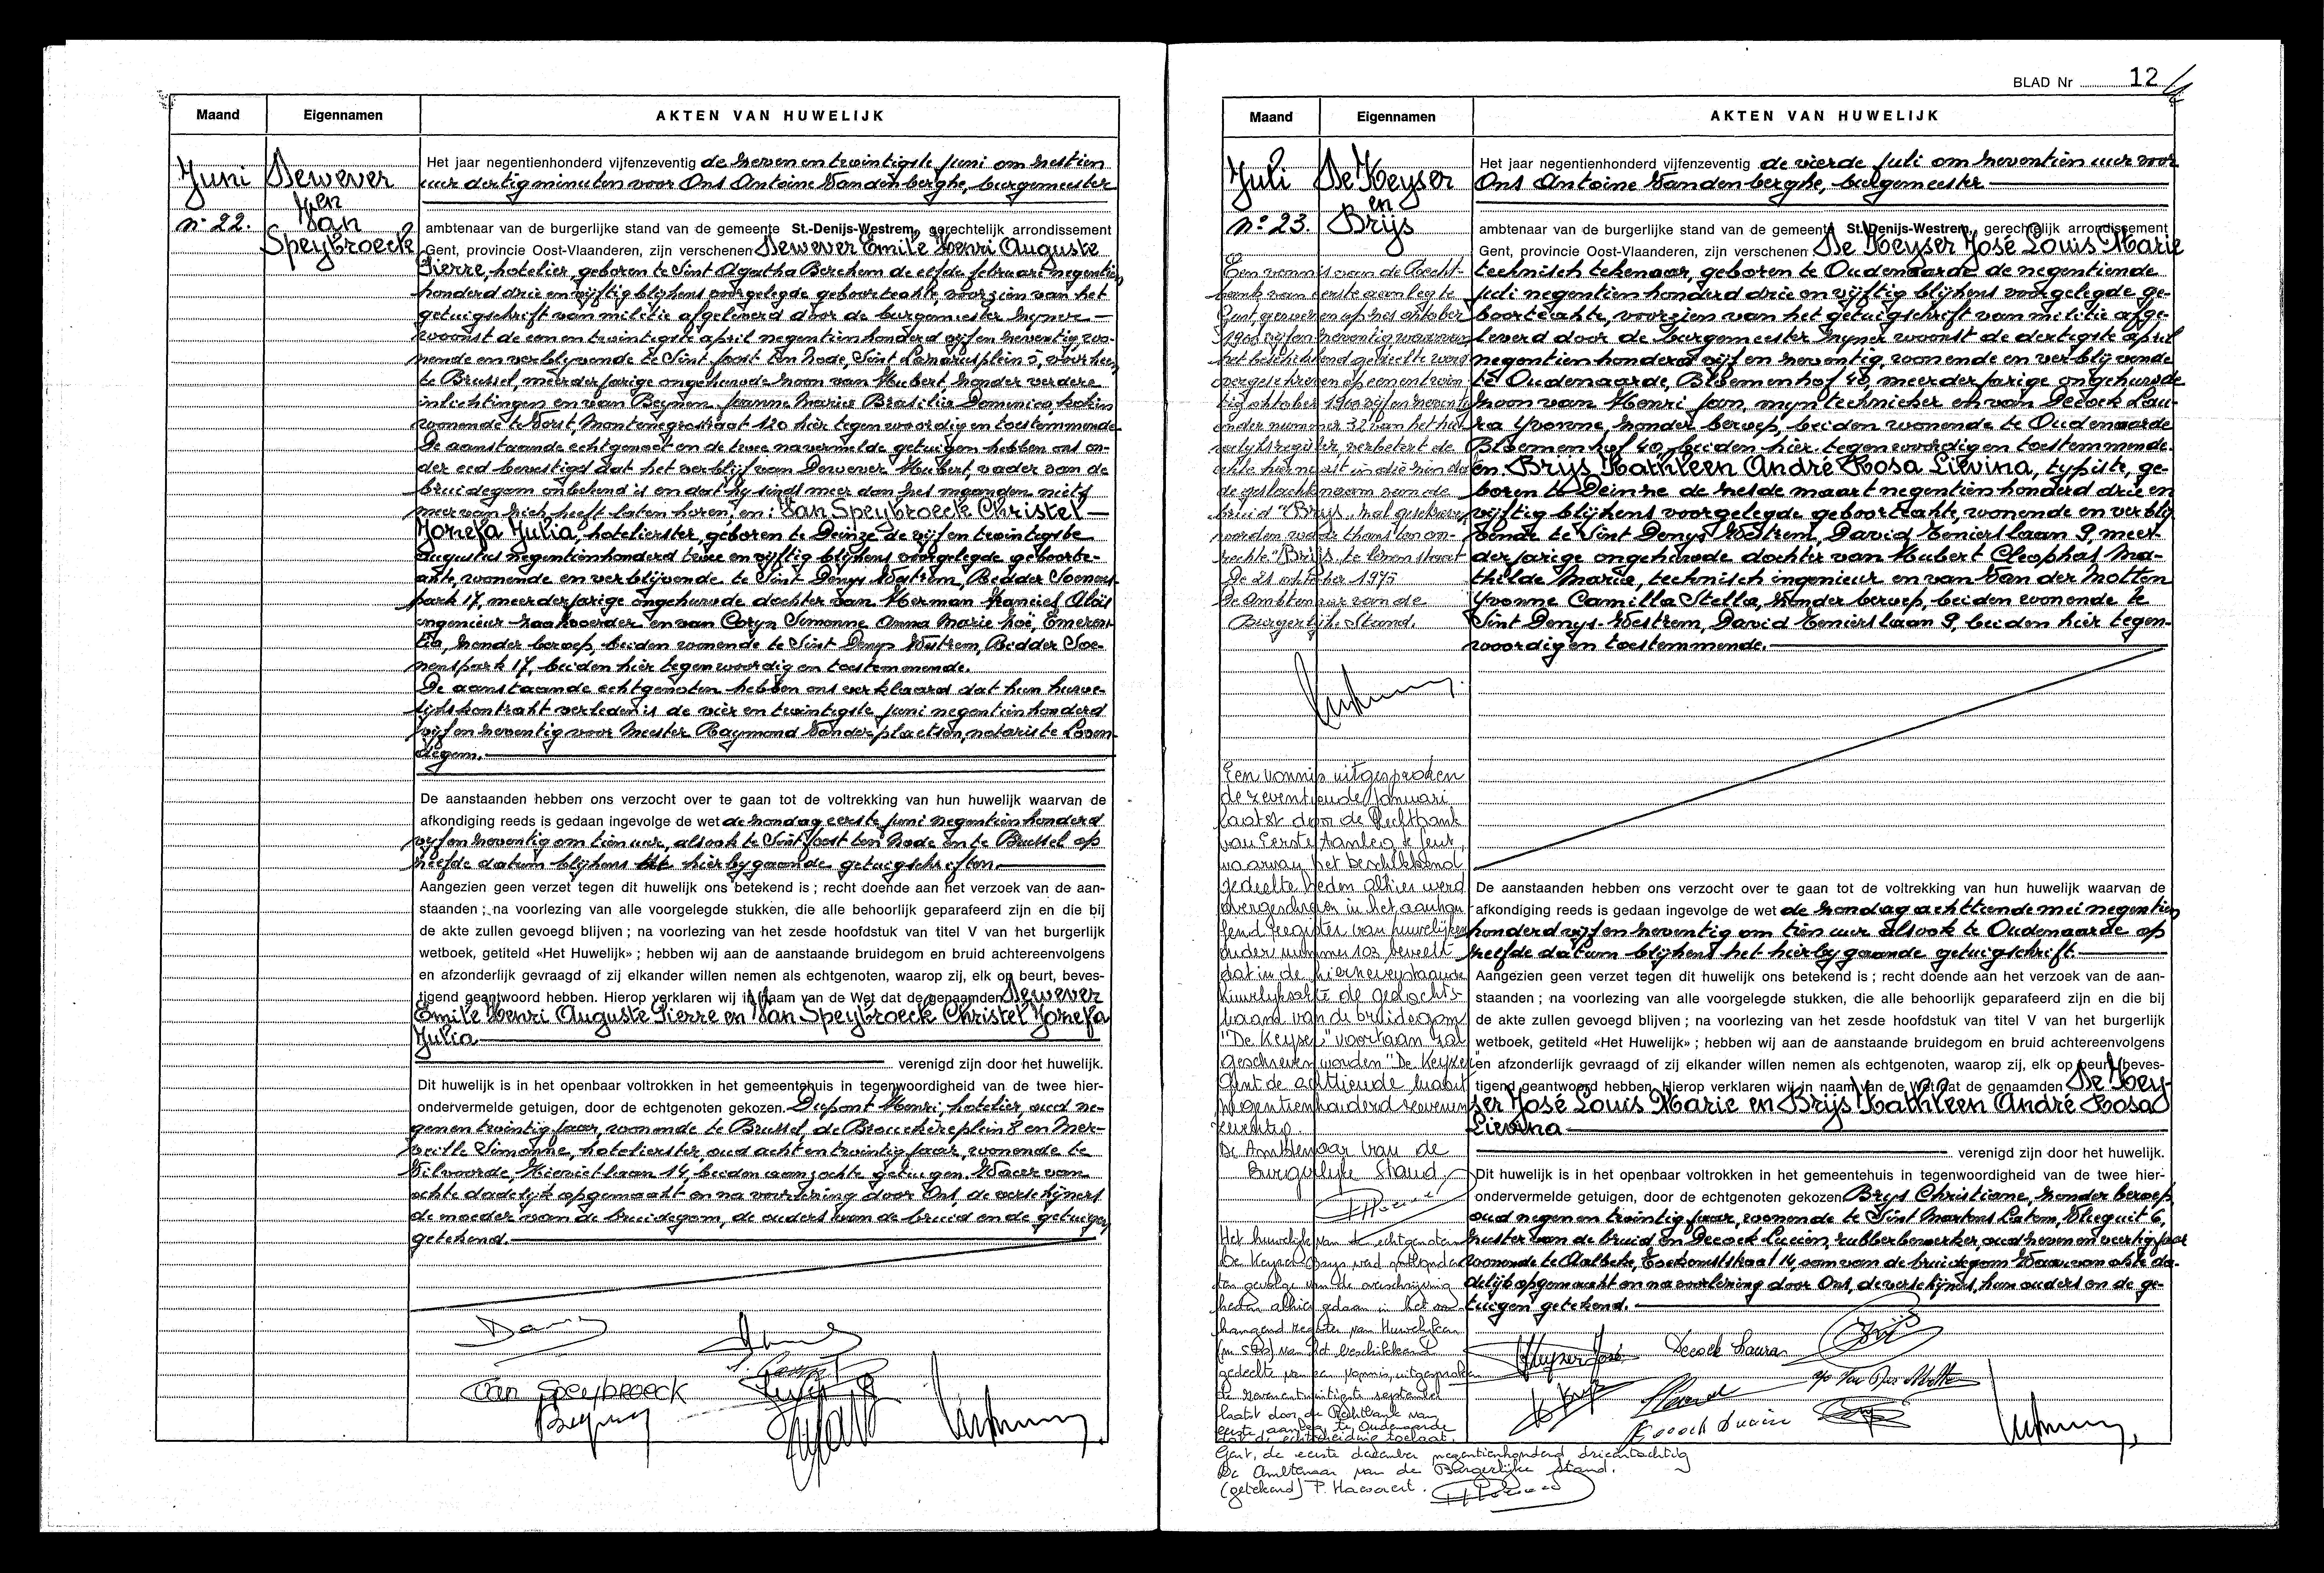 Maand Eigennamen AKTEN VAN HUWELIJK
Juni
n° 22.
Dewever
en
Van
Speybroeck
Het jaar negentienhonderd vijfenzeventig de zeven en twintigste juni om zestien
uur dertig minuten voor Ons Antoine Vandenberghe, burgemeester
ambtenaar van de burgerlijke stand van de gemeente St.-Denijs-Westrem, gerechtelijk arrondissement
Gent, provincie Oost-Vlaanderen, zijn verschenen Dewever Emile Henri Auguste
Pierre, hotelier, geboren te Sint Agatha Berchem de elfde februari negentien
honderd drie en vijftig blijkens voorgelegde geboorteakte, voorzien van het
getuigschrift van militie afgeleverd door de burgemeester zijner
woonst de een en twintigste april negentien honderd vijf en zeventig wo-
nende en verblijvende te Sint Joost ten Node, Sint Lazarusplein 5, voorheen
te Brussel, meerderjarige ongehuwde zoon van Hubert zonder verdere
inlichtingen en van Beynen Jeanne Marie Brasilia Domenica, kokin
wonende te Vorst, Montenegrostraat 120 hier tegenwoordig en toestemmende.
De aanstaande echtgenoot en de twee navermelde getuigen hebben ons on-
der eed bevestigd dat het verblijf van Dewever Hubert, vader van de
bruidegom onbekend is en dat hij sinds meer dan zes maanden niets
meer van zich heeft laten horen. en: Van Speybroeck Christel
Jozefa Julia, hotelierster, geboren te Deinze de vijf en twintigste
augustus negentienhonderd twee en vijftig blijkens voorgelegde geboorte-
akte, wonende en verblijvende te Sint Denys Westrem, Ridder Soenens-
park 17, meerderjarige ongehuwde dochter van Herman Francies Aloïs
ingenieur zaakvoerder en van Coryn Simonne Anna Marie Zoë, Emeren-
tia, zonder beroep, beiden wonende te Sint Denys Westrem, Ridder Soe-
nenspark 17, beiden hier tegenwoordig en toestemmende.
De aanstaande echtgenoten hebben ons verklaard dat hun huwe-
lijkskontrakt verleden is de vier en twintigste juni negentienhonderd
vijf en zeventig voor Meester Raymond Vanderplaetsen, notaris te Loven-
degem.
De aanstaanden hebben ons verzocht over te gaan tot de voltrekking van hun huwelijk waarvan de
afkondiging reeds is gedaan ingevolge de wet de zondag eerste juni negentienhonderd
vijf en zeventig om tien uur, alsook te Sint Joost ten Node en te Brussel op
zelfde datum blijkens hierbijgaande getuigschriften.
Aangezien geen verzet tegen dit huwelijk ons betekend is ; recht doende aan het verzoek van de aan-
staanden ; na voorlezing van alle voorgelegde stukken, die alle behoorlijk geparafeerd zijn en die bij
de akte zullen gevoegd blijven ; na voorlezing van het zesde hoofdstuk van titel V van het burgerlijk
wetboek, getiteld «Het Huwelijk» ; hebben wij aan de aanstaande bruidegom en bruid achtereenvolgens
en afzonderlijk gevraagd of zij elkander willen nemen als echtgenoten, waarop zij, elk op beurt, beves-
tigend geantwoord hebben. Hierop verklaren wij in naam van de Wet dat de genaamden Dewever
Emile Henri Auguste Pierre en Van Speybroeck Christel Jozefa
Julia
verenigd zijn door het huwelijk.
Dit huwelijk is in het openbaar voltrokken in het gemeentehuis in tegenwoordigheid van de twee hier-
ondervermelde getuigen, door de echtgenoten gekozen. Dupont Henri, hotelier, oud ne-
gen en twintig jaar, wonende te Brussel, de Brouckèreplein 8 en Mer-
veille Simonne, hotelierster, oud acht en twintig jaar, wonende te
Vilvoorde, Kievietlaan 14, beiden aanzochte getuigen. Waarvan
akte dadelijk opgemaakt en na voorlezing door Ons, de verschijners
de moeder van de bruidegom, de ouders van de bruid en de getuigen
getekend.
Van Speybroeck
BLAD Nr 12
Maand Eigennamen AKTEN VAN HUWELIJK
Juli
n° 23.
De Keyser
en
Brijs
Een vonnis van de Recht-
bank van eerste aanleg te
Gent, gewezen op zes oktober
1900 vijf en zeventig waarvan
het beschikkend gedeelte werd
overgeschreven op een en twin-
tig oktober 1900 vijf en zeventig
onder nummer 32 van het hu-
welijksregister, verbetert de
akte hiernaast in die zin dat
de geslachtsnaam van de
bruid "Brys" zal geschreven
worden
"Brijs"
De 21 oktober 1975
De Ambtenaar van de
Burgerlijke Stand.
Een vonnis uitgesproken
de zeventiende januari
laatst door de Rechtbank
van Eerste Aanleg te Gent,
waarvan het beschikkend
gedeelte heden alhier werd
overgeschreven in het aanhan-
gend register van huwelijken
onder nummer 103 beveelt
dat in de hiernevenstaande
huwelijksakte de geslachts-
naam van de bruidegom
"De Keyser" voortaan zal
geschreven worden "De Keyzer"
Gent de achttiende maart
negentienhonderd zevenen-
zeventig.
De Ambtenaar van de
Burgerlijke Stand
Het huwelijk van de echtgenoten
De Keyser-Brys werd ontbonden
ten gevolge van de overschrijving
heden alhier gedaan in het aan-
hangend register van Huwelijken
van het beschikkend
gedeelte van een vonnis, uitgesproken
de zevenentwintigste september
laatst door de Rechtbank van
eerste aanleg te Oudenaarde
dat de echtscheiding toelaat.
Gent, de eerste december negentienhonderd drieëntachtig
De Ambtenaar van de Burgerlijke Stand.
(getekend) P. Hawaert.
Het jaar negentienhonderd vijfenzeventig de vierde juli om zeventien uur voor
Ons Antoine Vandenberghe, burgemeester
ambtenaar van de burgerlijke stand van de gemeente St.-Denijs-Westrem, gerechtelijk arrondissement
Gent, provincie Oost-Vlaanderen, zijn verschenen De Keyser José Louis Marie
technisch tekenaar, geboren te Oudenaarde de negentiende
juli negentien honderd drie en vijftig blijkens voorgelegde ge-
boorteakte, voorzien van het getuigschrift van militie afge-
leverd door de burgemeester zijner woonst de dertigste april
negentien honderd vijf en zeventig, wonende en verblijvende
te Oudenaarde, Bloemenhof 40, meerderjarige ongehuwde
zoon van Henri Jan, mijntechnieker en van Decock Lau-
ra Yvonne, zonder beroep, beiden wonende te Oudenaarde
Bloemenhof 40, beiden hier tegenwoordig en toestemmende.
en Brijs Kathleen André Rosa Lievina, typiste, ge-
boren te Deinze de zesde maart negentien honderd drie en
vijftig blijkens voorgelegde geboorteakte, wonende en verblij-
vende te Sint Denys Westrem, David Tenierslaan 9, meer-
derjarige ongehuwde dochter van Hubert Cleophas Ma-
thilde Marie, technisch ingenieur en van Van der Motten
Yvonne Camilla Stella, zonder beroep, beiden wonende te
Sint Denys-Westrem, David Tenierslaan 9, beiden hier tegen-
woordig en toestemmende.
De aanstaanden hebben ons verzocht over te gaan tot de voltrekking van hun huwelijk waarvan de
afkondiging reeds is gedaan ingevolge de wet de zondag achttiende mei negentien
honderd vijf en zeventig om tien uur alsook te Oudenaarde op
zelfde datum blijkens het hierbijgaande getuigschrift.
Aangezien geen verzet tegen dit huwelijk ons betekend is ; recht doende aan het verzoek van de aan-
staanden ; na voorlezing van alle voorgelegde stukken, die alle behoorlijk geparafeerd zijn en die bij
de akte zullen gevoegd blijven ; na voorlezing van het zesde hoofdstuk van titel V van het burgerlijk
wetboek, getiteld «Het Huwelijk» ; hebben wij aan de aanstaande bruidegom en bruid achtereenvolgens
en afzonderlijk gevraagd of zij elkander willen nemen als echtgenoten, waarop zij, elk op beurt, beves-
tigend geantwoord hebben. Hierop verklaren wij in naam van de Wet dat de genaamden De Key-
ser José Louis Marie en Brijs Kathleen André Rosa
Lievina
verenigd zijn door het huwelijk.
Dit huwelijk is in het openbaar voltrokken in het gemeentehuis in tegenwoordigheid van de twee hier-
ondervermelde getuigen, door de echtgenoten gekozen Brys Christiane, zonder beroep,
oud negen en twintig jaar, wonende te Sint Martens Latem, Vlieguit 6,
zuster van de bruid en Decock Lucien, rubberbewerker, oud zeven en veertig jaar
wonende te Aalbeke, Toekomststraat 14, oom van de bruidegom. Waarvan akte da-
delijk opgemaakt en na voorlezing door Ons, de verschijners, hun ouders en de ge-
tuigen getekend.
Decock Laura